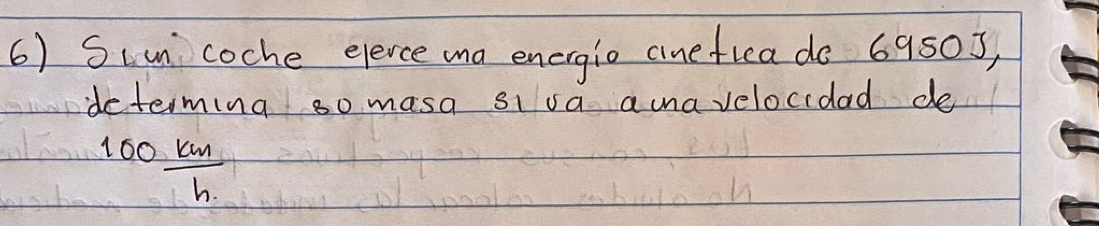 6) Si un coche ejerce una energía cinetica de 6950J,
determina so masa si va a una velocidad de
100 km
h.